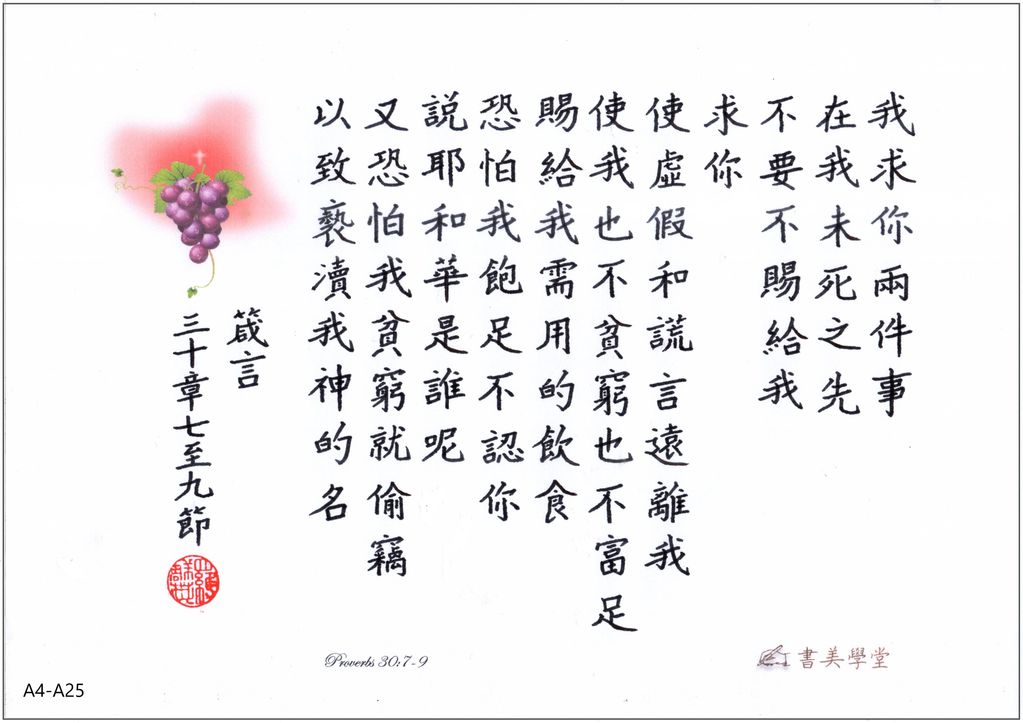 我求你兩件事
在我未死之先
不要不賜給我
求你
使虛假和謊言遠離我
使我也不貧窮也不富足
賜給我需用的飲食
恐怕我飽足不認你
説耶和華是誰呢
又恐怕我貧窮就偷竊
以致褻瀆我神的名
箴言
三十章七至九節
Proverbs 30:7-9
書美學堂
A4-A25